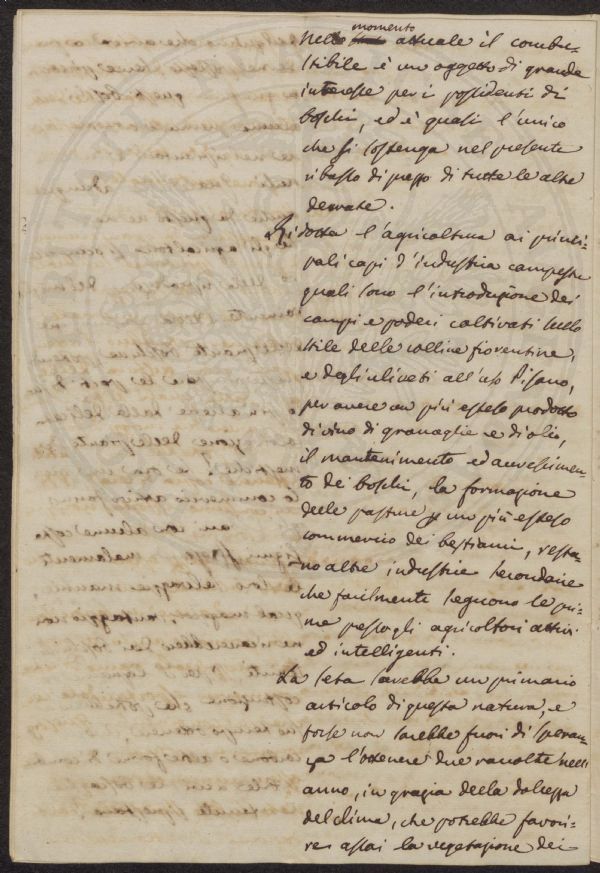 momento
Nello stato attuale il combu-
stibile è un oggetto di grande
interesse per i possidenti di
boschi, ed è quasi l'unico
che si sostenga nel presente
ribasso di prezzo di tutte le altre
derrate.
Ridotta l'agricoltura ai princi-
pali capi d'industria campestre
quali sono l'introduzione dei
campi e poderi coltivati sullo
stile delle colline fiorentine,
e degli uliveti all'uso Pisano,
per avere un più esteso prodotto
di vino di granaglie e di olio,
il mantenimento ed accrescimen-
to dei boschi, la formazione
delle pasture p un più esteso
commercio dei bestiami, resta-
no altre industrie secondarie
che facilmente seguono le pri-
me presso gli agricoltori attivi
ed intelligenti.
La seta sarebbe un primario
articolo di questa natura, e
forse non sarebbe fuori di speran-
za l'ottenere due raccolte nell'
anno, in grazia della dolcezza
del clima, che potrebbe favori-
re assai la vegetazione dei